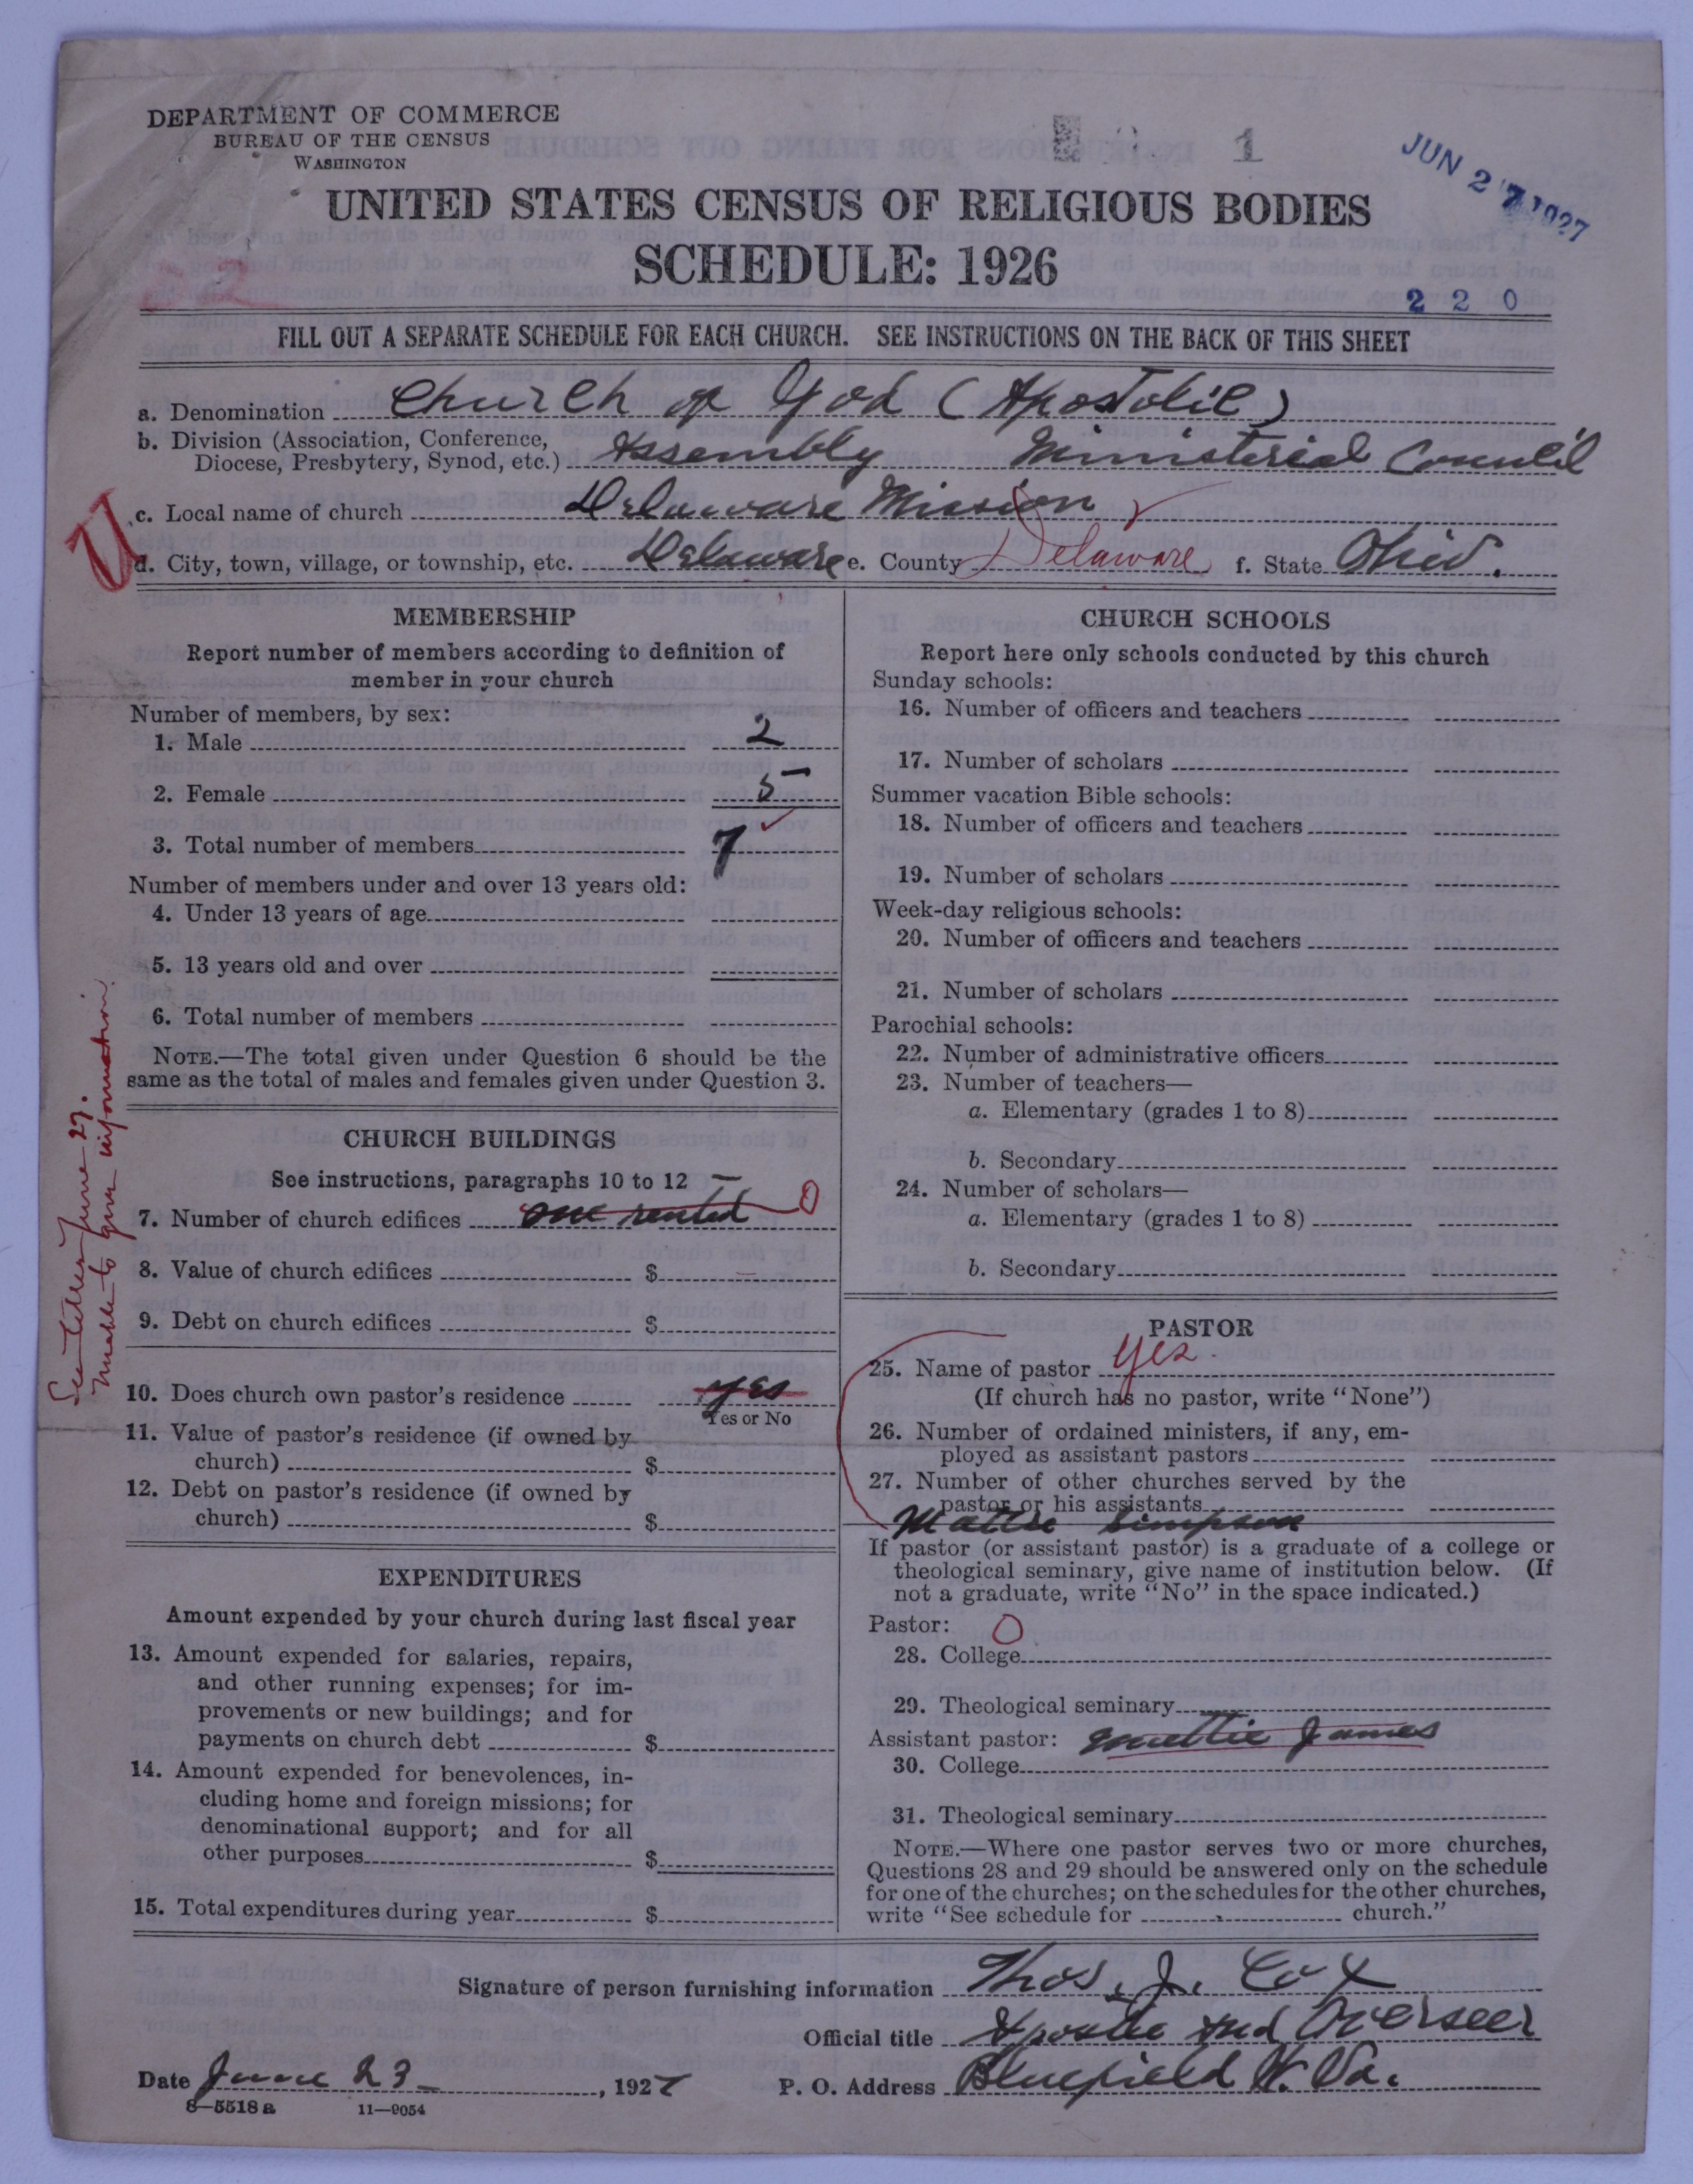 DEPARTMENT OF COMMERCE
BUREAU OF THE CENSUS
WASHINGTON
1
JUN 27 1927
UNITED STATES CENSUS OF RELIGIOUS BODIES
SCHEDULE: 1926
2 2 0
FILL OUT A SEPARATE SCHEDULE FOR EACH CHURCH. SEE INSTRUCTIONS ON THE BACK OF THIS SHEET
a. Denomination Church of God (Apostolic)
b. Division (Association, Conference,
Diocese, Presbytery, Synod, etc.) Assembly Ministerial Council
c. Local name of church Delaware Mission
d. City, town, village, or township, etc. Delaware e. County Delaware f. State Ohio.
MEMBERSHIP
Report number of members according to definition of
member in your church
Number of members, by sex:
1. Male 2
2. Female 5
3. Total number of members 7
Number of members under and over 13 years old:
4. Under 13 years of age
5. 13 years old and over
6. Total number of members
NOTE.—The total given under Question 6 should be the
same as the total of males and females given under Question 3.
See letter June 27.
Unable to give information.
CHURCH BUILDINGS
See instructions, paragraphs 10 to 12
7. Number of church edifices one rented 0
8. Value of church edifices $
9. Debt on church edifices $
10. Does church own pastor's residence yes
Yes or No
11. Value of pastor's residence (if owned by
church) $
12. Debt on pastor's residence (if owned by
church) $
EXPENDITURES
Amount expended by your church during last fiscal year
13. Amount expended for salaries, repairs,
and other running expenses; for im-
provements or new buildings; and for
payments on church debt $
14. Amount expended for benevolences, in-
cluding home and foreign missions; for
denominational support; and for all
other purposes $
15. Total expenditures during year $
CHURCH SCHOOLS
Report here only schools conducted by this church
Sunday schools:
16. Number of officers and teachers
17. Number of scholars
Summer vacation Bible schools:
18. Number of officers and teachers
19. Number of scholars
Week-day religious schools:
20. Number of officers and teachers
21. Number of scholars
Parochial schools:
22. Number of administrative officers
23. Number of teachers—
a. Elementary (grades 1 to 8)
b. Secondary
24. Number of scholars—
a. Elementary (grades 1 to 8)
b. Secondary
PASTOR
25. Name of pastor Yes.
(If church has no pastor, write "None")
26. Number of ordained ministers, if any, em-
ployed as assistant pastors
27. Number of other churches served by the
pastor or his assistants
Mattie Simpson
If pastor (or assistant pastor) is a graduate of a college or
theological seminary, give name of institution below. (If
not a graduate, write "No" in the space indicated.)
Pastor: 0
28. College
29. Theological seminary
Assistant pastor: Mattie James
30. College
31. Theological seminary
NOTE.—Where one pastor serves two or more churches,
Questions 28 and 29 should be answered only on the schedule
for one of the churches; on the schedules for the other churches,
write "See schedule for church."
Signature of person furnishing information Thos. J. Cox
Official title Apostle and Overseer
Date June 23, 1927 P. O. Address Bluefield W. Va.
8—5518 a 11—9054